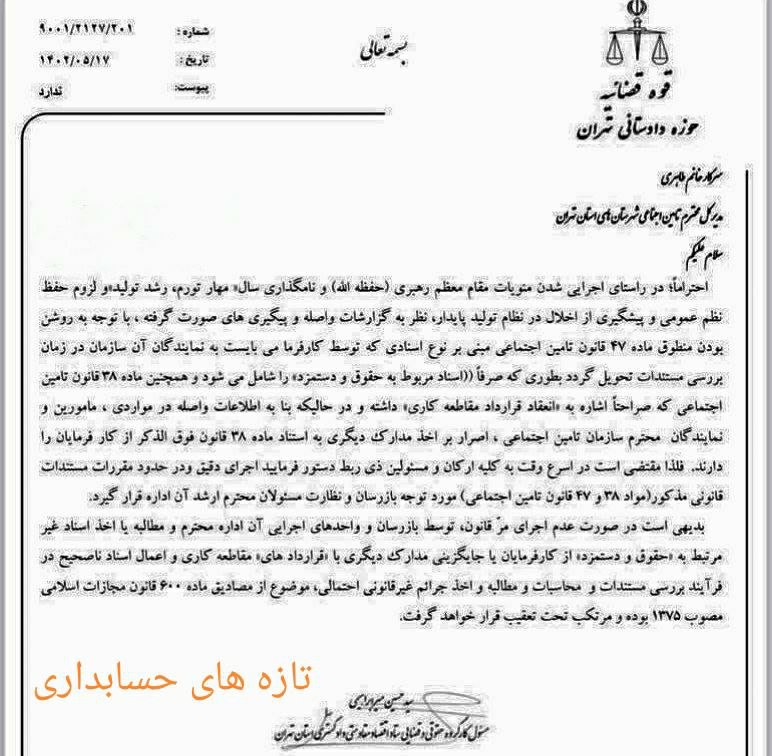 شماره : ۹۰۰۱/۲۱۲۷/۲۰۱
تاریخ : ۱۴۰۲/۰۵/۱۷
پیوست: ندارد
بسمه تعالی
قوه قضائیه
حوزه دادستانی تهران
سرکار خانم طاهری
مدیرکل محترم تامین اجتماعی شهرستان های استان تهران
سلام علیکم
احتراماً؛ در راستای اجرایی شدن منویات مقام معظم رهبری (حفظه الله) و نامگذاری سال« مهار تورم، رشد تولید»و لزوم حفظ
نظم عمومی و پیشگیری از اخلال در نظام تولید پایدار، نظر به گزارشات واصله و پیگیری های صورت گرفته ، با توجه به روشن
بودن منطوق ماده ۴۷ قانون تامین اجتماعی مبنی بر نوع اسنادی که توسط کارفرما می بایست به نمایندگان آن سازمان در زمان
بررسی مستندات تحویل گردد بطوری که صرفاً ((اسناد مربوط به حقوق و دستمزد» را شامل می شود و همچنین ماده ۳۸ قانون تامین
اجتماعی که صراحتاً اشاره به «انعقاد قرارداد مقاطعه کاری» داشته و در حالیکه بنا به اطلاعات واصله در مواردی ، مامورین و
نمایندگان محترم سازمان تامین اجتماعی ، اصرار بر اخذ مدارک دیگری به استناد ماده ۳۸ قانون فوق الذکر از کار فرمایان را
دارند. فلذا مقتضی است در اسرع وقت به کلیه ارکان و مسئولین ذی ربط دستور فرمایید اجرای دقیق ودر حدود مقررات مستندات
قانونی مذکور(مواد ۳۸ و ۴۷ قانون تامین اجتماعی) مورد توجه بازرسان و نظارت مسئولان محترم ارشد آن اداره قرار گیرد.
بدیهی است در صورت عدم اجرای مرّ قانون، توسط بازرسان و واحدهای اجرایی آن اداره محترم و مطالبه یا اخذ اسناد غیر
مرتبط به «حقوق و دستمزد» از کارفرمایان یا جایگزینی مدارک دیگری با «قرارداد های» مقاطعه کاری و اعمال اسناد ناصحیح در
فرآیند بررسی مستندات و محاسبات و مطالبه و اخذ جرائم غیرقانونی احتمالی، موضوع از مصادیق ماده ۶۰۰ قانون مجازات اسلامی
مصوب ۱۳۷۵ بوده و مرتکب تحت تعقیب قرار خواهد گرفت.
تازه های حسابداری
سید حسین میرابراهیمی
مسئول کارگروه حقوقی و قضایی ستاد اقتصاد مقاومتی دادگستری استان تهران